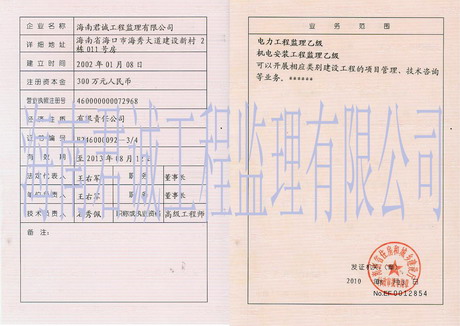 企业名称 海南君诚工程监理有限公司
详细地址 海南省海口市海秀大道建设新村2
栋011号房
建立时间 2002年01月08日
注册资本金 300万元人民币
营业执照注册号 460000000072968
有限责任公司
证书编号 E246000092-3/4
有效期 至2013年08月
法定代表人 王右军 职务 董事长
王右军 职务 董事长
技术负责人 高级工程师
备注:
业务范围
电力工程监理乙级
机电安装工程监理乙级
可以开展相应类别建设工程的项目管理、技术咨询
等业务。******
发证机关
2010
No.EF0012854
海南君诚工程监理有限公司